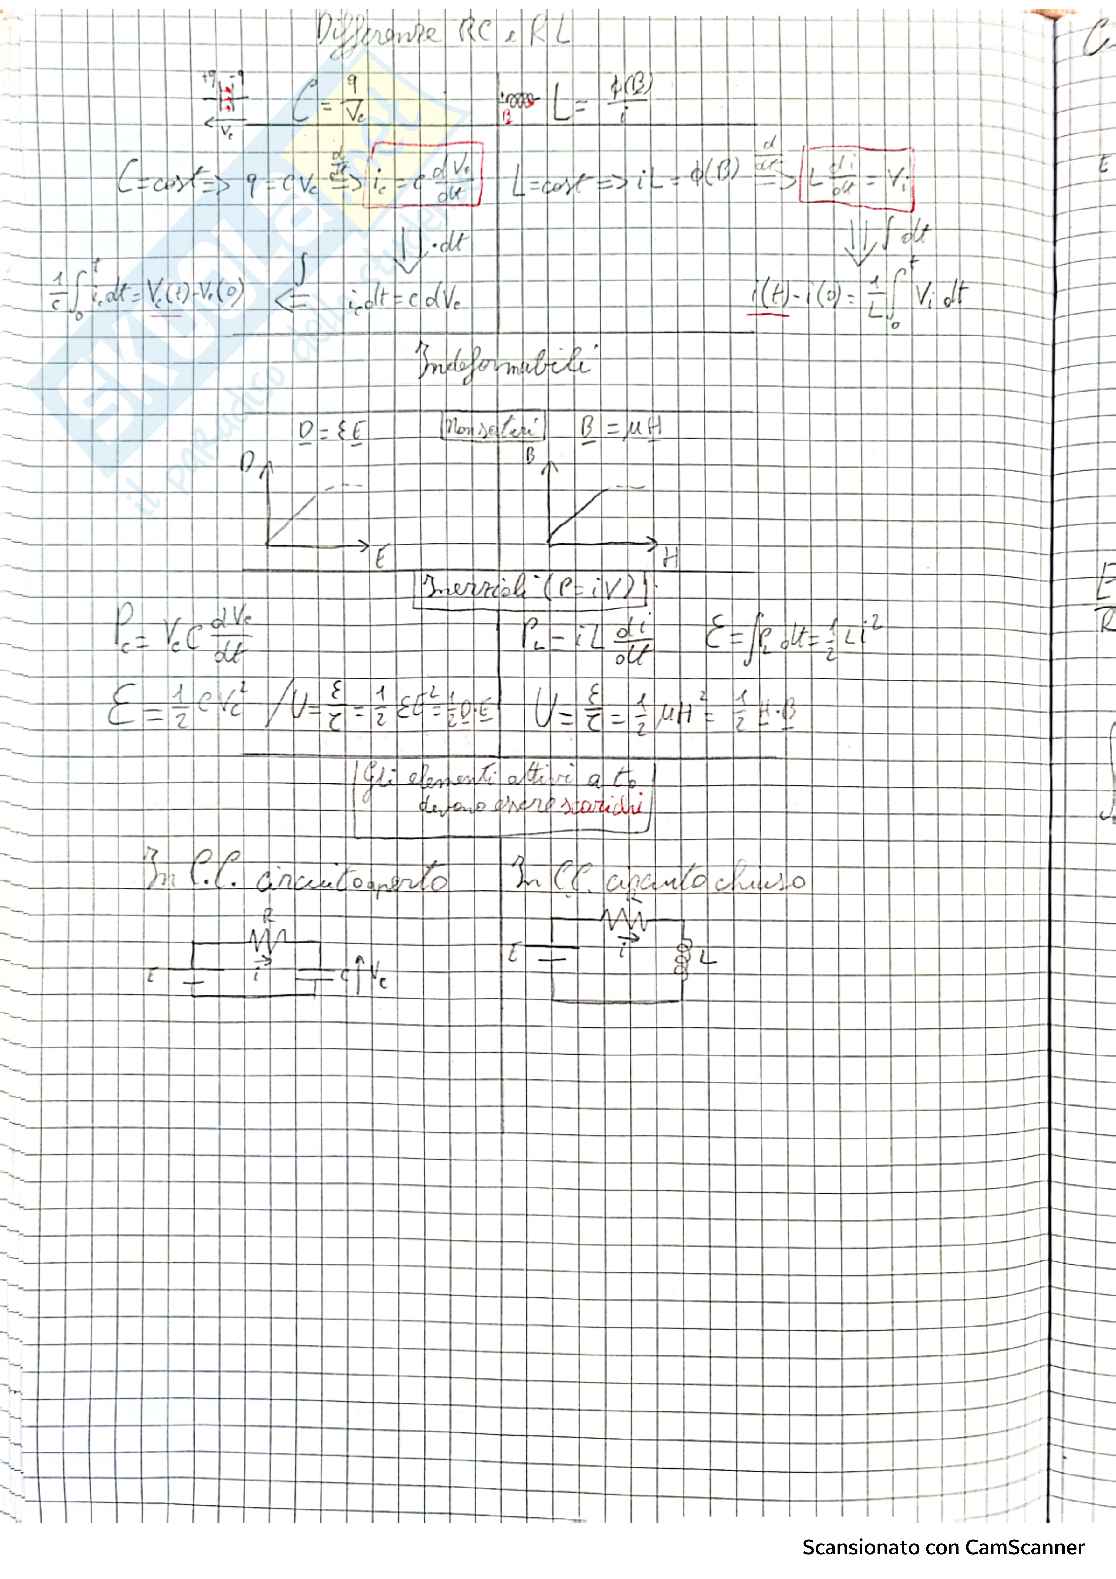 Differenze RC e RL
+q -q
C = q/Vc
L = ϕ(B)/i
Vc
B
C = cost => q = C Vc d/dt => ic = C dVc/dt
L = cost => iL = ϕ(B) d/dt => L di/dt = Vi
· dt
∫ dt
1/C ∫₀ᵗ ic dt = Vc(t) - Vc(0) <= ∫ ic dt = C dVc
i(t) - i(0) = 1/L ∫₀ᵗ Vi dt
Indeformabili
D = εE
Non saturi
B = μH
D
B
E
H
Inerziali (P = iV)
Pc = Vc C dVc/dt
PL = i L di/dt
ℰ = ∫ PL dt = 1/2 Li²
ℰ = 1/2 C Vc² / U = ℰ/τ = 1/2 εE² = 1/2 D·E
U = ℰ/τ = 1/2 μH² = 1/2 H·B
Gli elementi attivi a t₀
devono essere scarichi
In C.C. circuito aperto
In C.C. circuito chiuso
R
E
i
C
Vc
E
i
L
SKUOLA.net
il paradiso dello studente
Scansionato con CamScanner